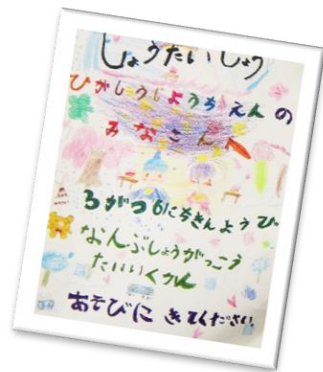 しょうたいしょう
ひがしうじようちえんの
みなさん
3がつ6にちきんようび
なんぶしょうがっこう
たいいくかん
あそびに きてください